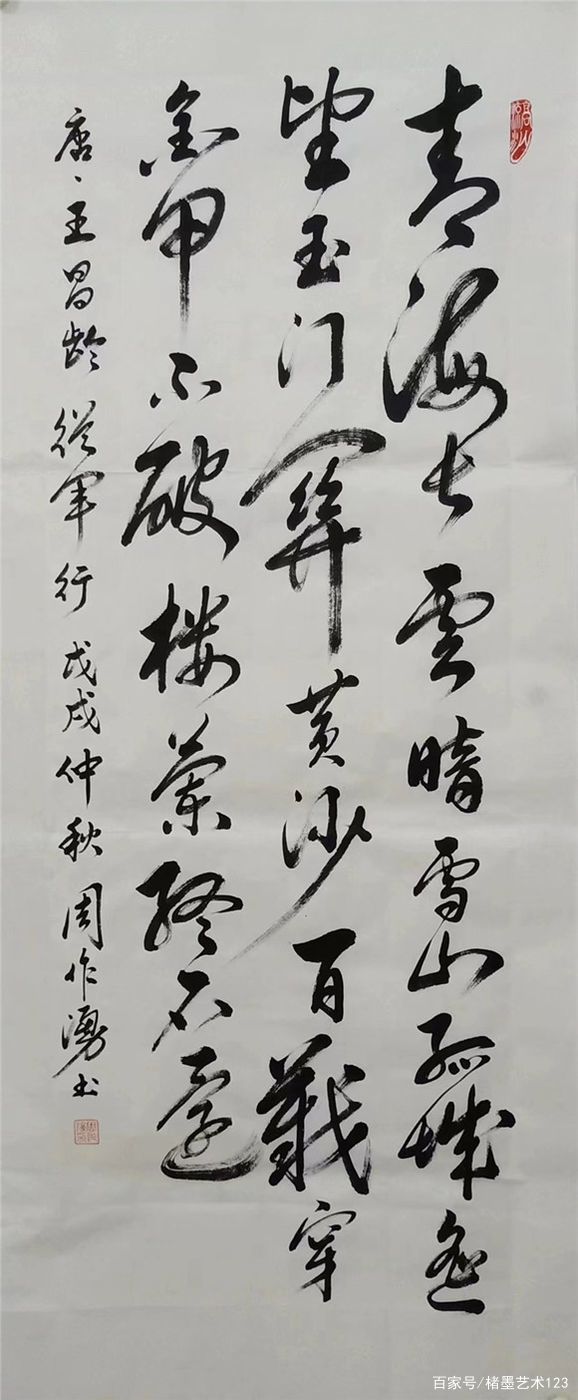 青海长雲暗雪山孤城遥
望玉门關黄沙百戰穿
金甲不破楼蘭終不還
唐、王昌齡從军行戊戌仲秋周作湧书
百家号/楮墨艺术123